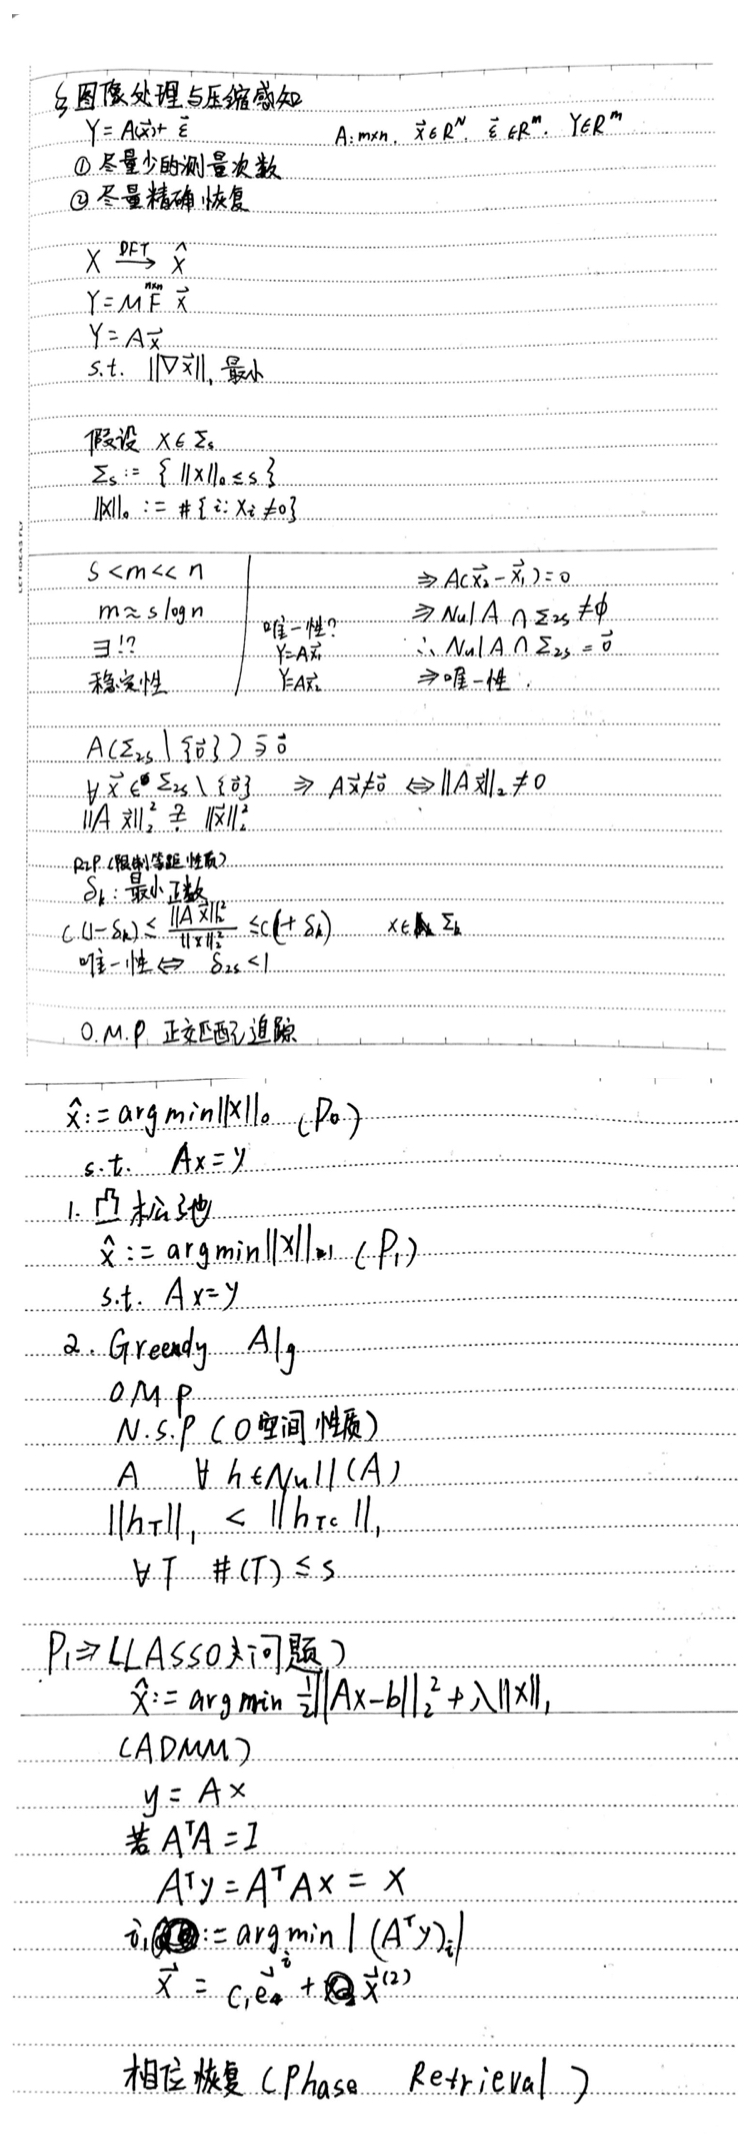 § 图像处理与压缩感知
Y = A(x⃗) + ε⃗    A: m×n, x⃗ ∈ R^N, ε⃗ ∈ R^m, Y ∈ R^m
① 尽量少的测量次数
② 尽量精确恢复
X —DFT→ X̂
Y = M F^{n×n} x⃗
Y = A x⃗
s.t. ||∇x⃗||₁ 最小
假设 X ∈ Σs
Σs := { ||X||₀ ≤ s }
||X||₀ := #{ i: Xi ≠ 0 }
LET IDEAS FLY
s < m << n
m ≈ s log n
∃!?
稳定性
唯一性?
Y = A x⃗₁
Y = A x⃗₂
⇒ A(x⃗₂ - x⃗₁) = 0
⇒ Nul A ∩ Σ2s ≠ ϕ
∴ Nul A ∩ Σ2s = 0⃗
⇒ 唯一性.
A(Σ2s \ {0⃗}) ∌ 0⃗
∀ x⃗ ∈ Σ2s \ {0⃗} ⇒ A x⃗ ≠ 0⃗ ⇔ ||A x⃗||₂ ≠ 0
||A x⃗||₂² ≟ ||x⃗||₂²
RIP (限制等距性质)
δk: 最小正数
C(1-δk) ≤ ||A x⃗||₂² / ||x||₂² ≤ C(1+δk)    x ∈ Σk
唯一性 ⇔ δ2s < 1
O.M.P 正交匹配追踪
x̂ := arg min ||X||₀ (P₀)
s.t. Ax = y
1. 凸松弛
x̂ := arg min ||X||₁ (P₁)
s.t. Ax = y
2. Greendy Alg
O.M.P
N.S.P (0空间性质)
A ∀ h ∈ Null(A)
||hT||₁ < ||hTc||₁
∀ T #(T) ≤ s
P₁ ⇒ (LASSO类问题)
x̂ := arg min ½||Ax-b||₂² + λ||X||₁
(ADMM)
y = Ax
若 AᵀA = I
Aᵀy = AᵀAx = X
i₁ := arg min |(Aᵀy)i|
x⃗ = c₁e⃗i + x⃗⁽²⁾
相位恢复 (Phase Retrieval)